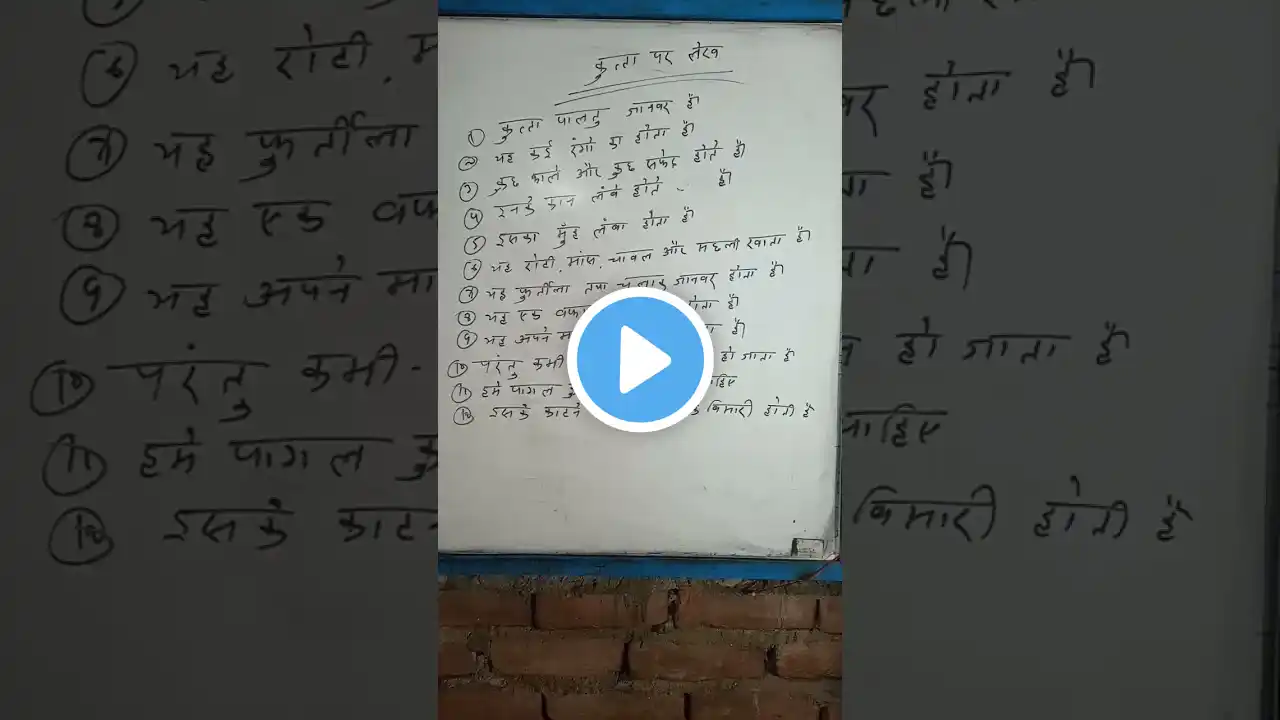 कुत्ता पर लेख
① कुत्ता पालतु जानवर है।
② यह कई रंगो का होता है।
③ कुछ काले और कुछ सफेद होते है।
④ इनके कान लंबे होते - है।
⑤ इसका मुँह लंबा होता है।
⑥ यह रोटी, मांस, चावल और मछली खाता है।
⑦ यह फुर्तीला तथा चलाक जानवर होता है।
⑧ यह एक वफा होता है।
⑨ यह अपने मा ता है।
⑩ परंतु कभी- हो जाता है
⑪ हमे पागल कु ाहिए
⑫ इसके काटने बिमारी होती है